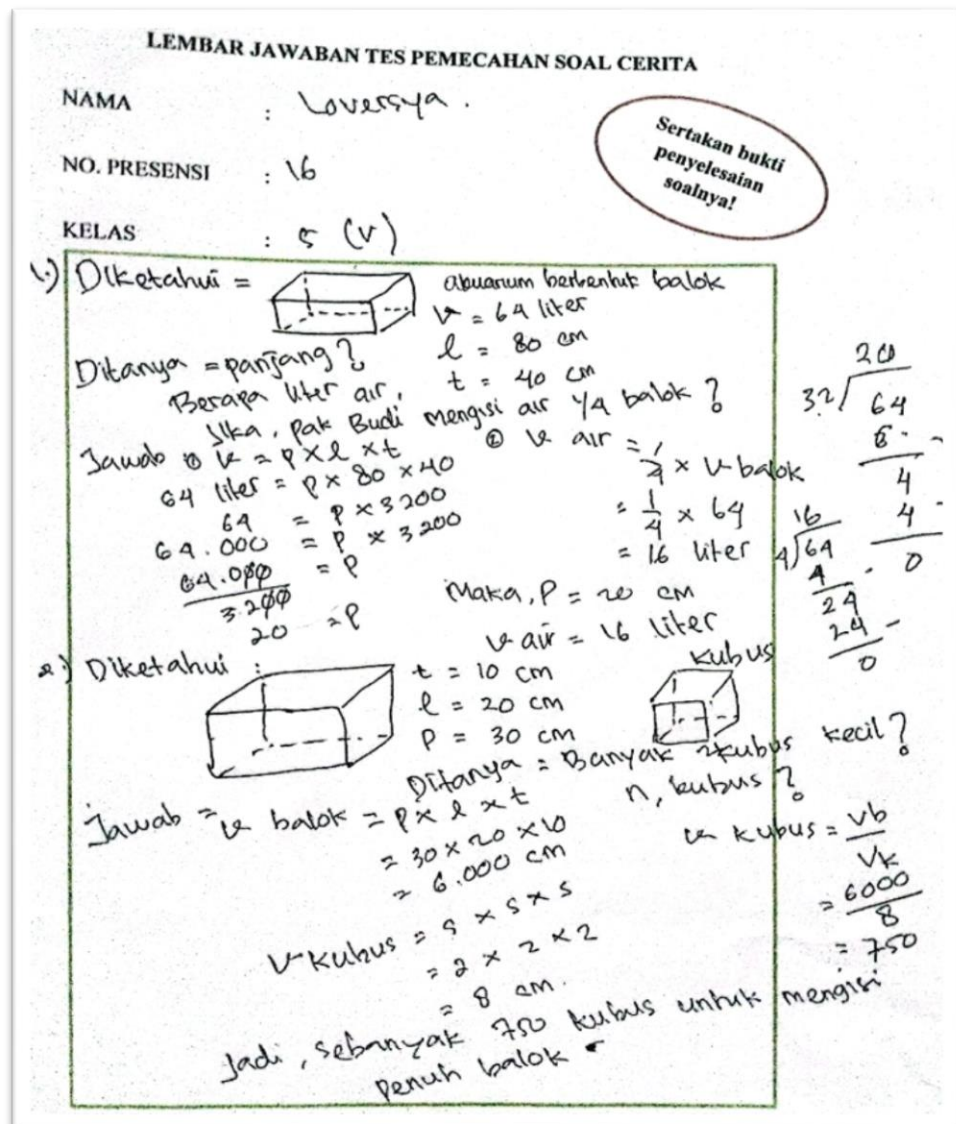 LEMBAR JAWABAN TES PEMECAHAN SOAL CERITA
NAMA : Loversya .
NO. PRESENSI : 16
KELAS : 5 (V)
Sertakan bukti
penyelesaian
soalnya!
1.) Diketahui =
akuarium berbentuk balok
V = 64 liter
l = 80 cm
t = 40 cm
Ditanya = panjang ?
Berapa liter air,
Jika, Pak Budi mengisi air 1/4 balok ?
Jawab ① V = p x l x t
64 liter = p x 80 x 40
64 = p x 3200
64.000 = p x 3.200
64.000 / 3.200 = p
20 = p
② V air = 1/4 x V balok
= 1/4 x 64
= 16 liter
Maka, P = 20 cm
V air = 16 liter
20
32 / 64
6 -
4
4 -
0
16
4 / 64
4 -
24
24 -
0
2.) Diketahui :
t = 10 cm
l = 20 cm
P = 30 cm
Kubus
Ditanya = Banyak kubus kecil ?
n, kubus ?
Jawab = V balok = p x l x t
= 30 x 20 x 10
= 6.000 cm
V kubus = s x s x s
= 2 x 2 x 2
= 8 cm.
V kubus = Vb / Vk
= 6000 / 8
= 750
Jadi, sebanyak 750 kubus untuk mengisi
penuh balok